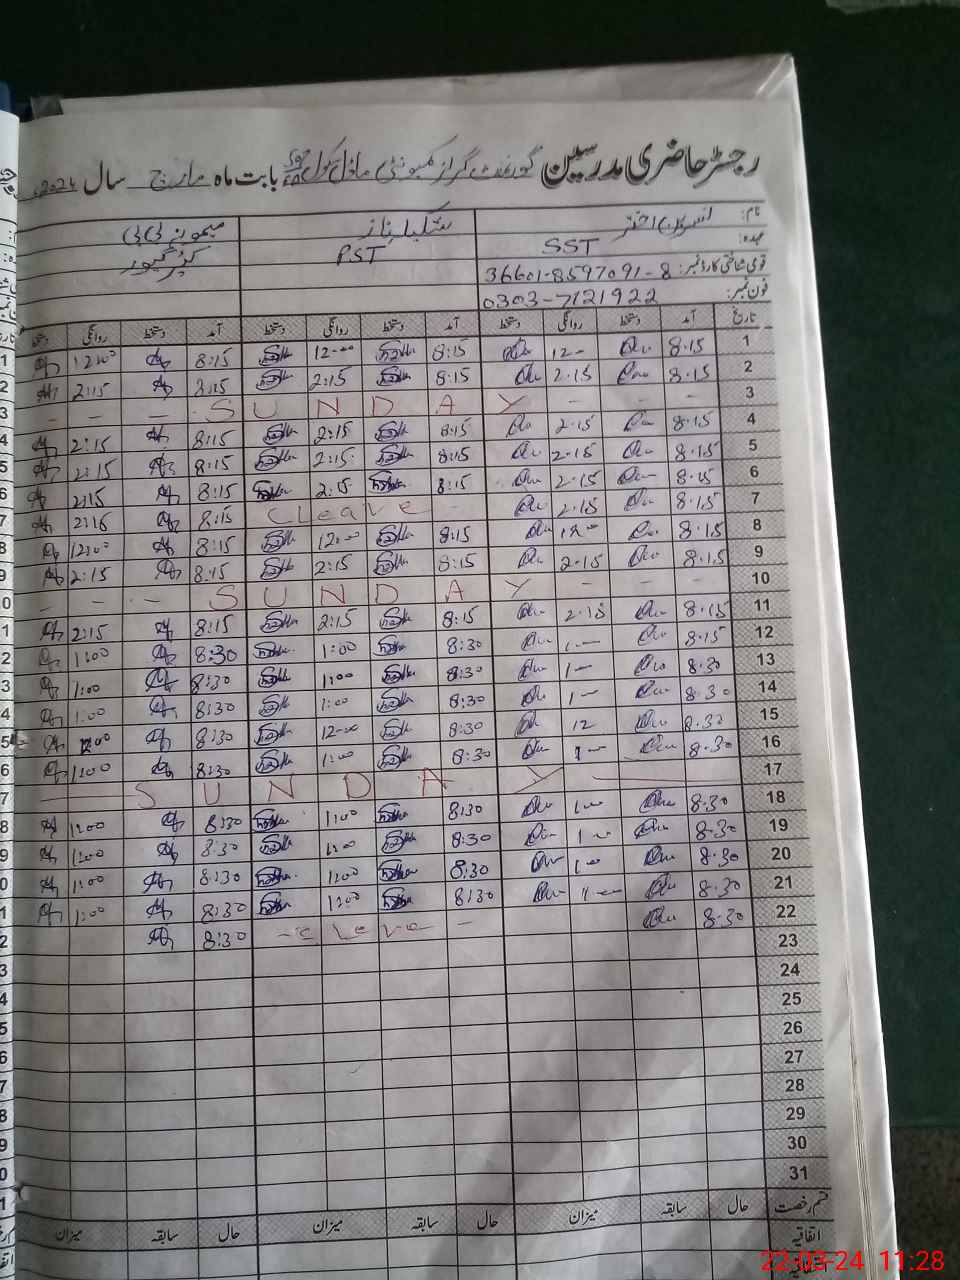 رجسٹر حاضری مدرسین گورنمنٹ گرلز کمیونٹی ماڈل سکول بابت ماہ مارچ سال 2024
نام: اختر شکیلہ ناز میمونہ بی بی
عہدہ: SST PST کیئر گیور
قومی شناختی کارڈ نمبر: 36601-8597091-8
فون نمبر: 0303-7121922
تاریخ آمد دستخط روانگی دستخط آمد دستخط روانگی دستخط آمد دستخط روانگی دستخط
1 8.15 12- 8:15 12-00 8:15 12:00
2 8.15 2.15 8:15 2:15 8:15 2:15
3 - - - SUNDAY - - -
4 8.15 2.15 8:15 2:15 8:15 2:15
5 8.15 2.15 8:15 2:15 8:15 2:15
6 8.15 2.15 8:15 2:15 8:15 2:15
7 8.15 2.15 - Cleave 8:15 2:15
8 8.15 8:15 12:00 8:15 12:00
9 8.15 2.15 8:15 2:15 8:15 2:15
10 - - - SUNDAY - - -
11 8.15 2.15 8:15 2:15 8:15 2:15
12 8.15 1- 8:30 1:00 8:30 1:00
13 8.30 1- 8:30 1:00 8:30 1:00
14 8.30 1- 8:30 1:00 8:30 1:00
15 8.30 12 8:30 12-00 8:30
16 8.30 1-00 8:30 1:00 8:30 1:00
17 SUNDAY
18 8.30 1-00 8:30 1:00 8:30 1:00
19 8.30 1-00 8:30 1:00 8:30 1:00
20 8.30 1-00 8:30 1:00 8:30 1:00
21 8.30 1-00 8:30 1:00 8:30 1:00
22 8.30 - cLeve - 8:30
23
24
25
26
27
28
29
30
31
قسم رخصت حال سابقہ میزان حال سابقہ میزان حال سابقہ میزان
اتفاقیہ
22-03-24 11:28